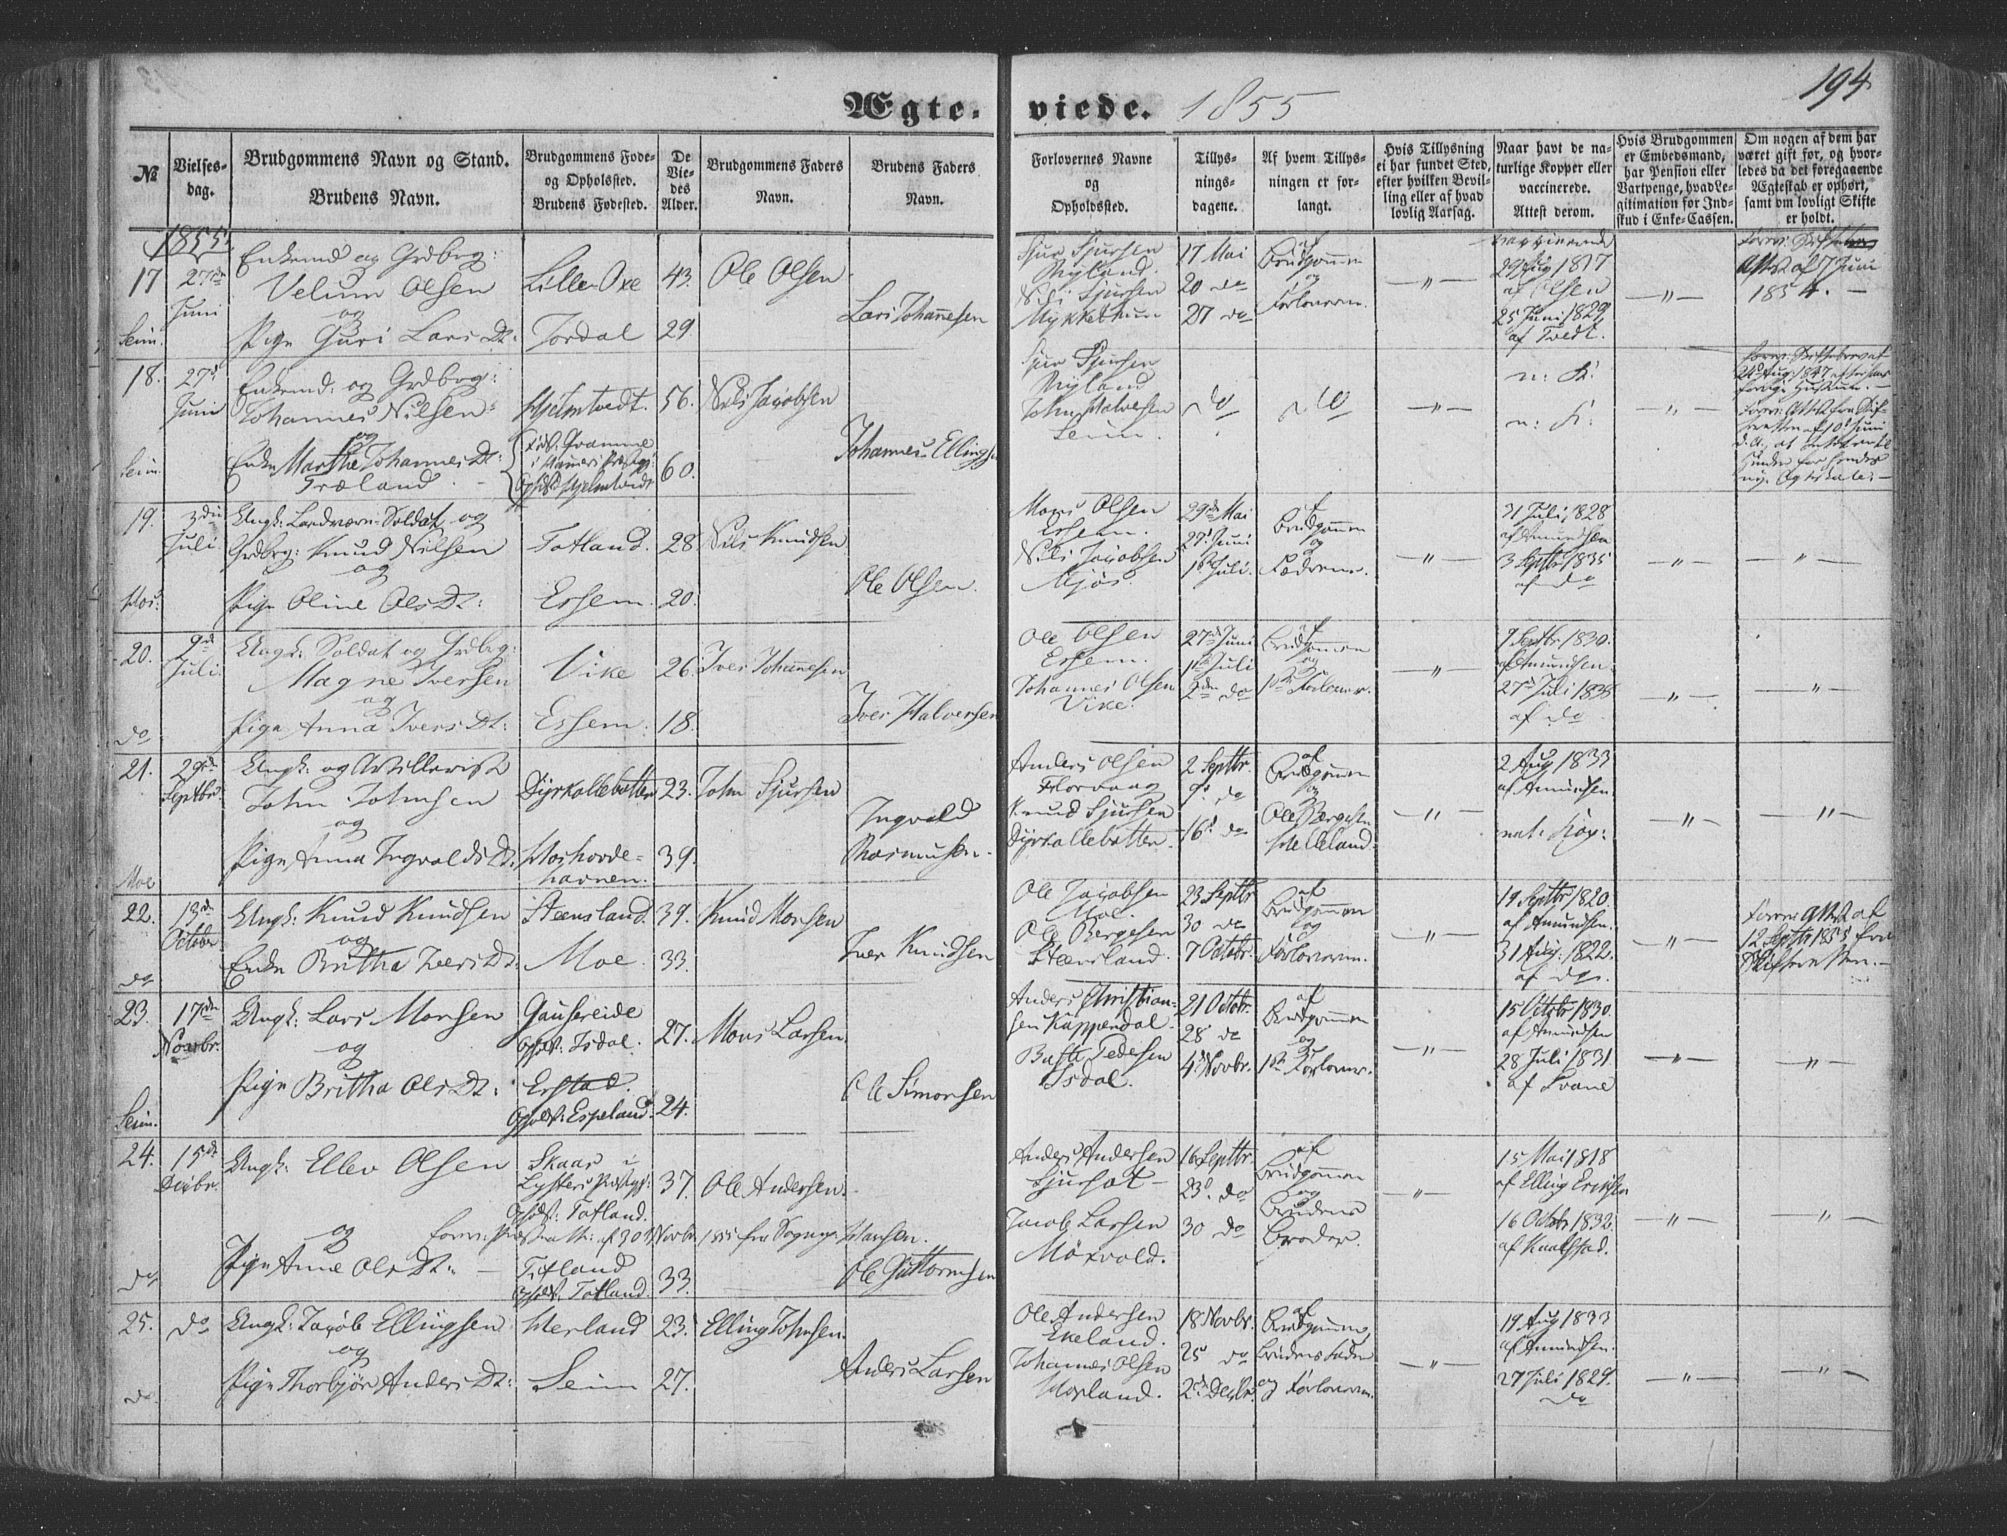 Ægte-
viede. 1855
194
№
Vielses-
dag.
Brudgommens Navn og Stand.
Brudens Navn.
Brudgommens Føde-
og Opholssted.
Brudens Fødested.
De
Vie-
des
Alder.
Brudgommens Faders
Navn.
Brudens Faders
Navn.
Forlovernes Navne
og
Opholdssted.
Tillys-
nings-
dagene.
Af hvem Tillys-
ningen er for-
langt.
Hvis Tillysning
ei har fundet Sted,
efter hvilken Bevil-
ling eller af hvad
lovlig Aarsag.
Naar havt de na-
turlige Kopper eller
vaccinerede.
Attest derom.
Hvis Brudgommen
er Embedsmand,
har Pension eller
Vartpenge, hvad Le-
gitimation for Ind-
skud i Enke-Cassen.
Om nogen af dem har
været gift før, og hvor-
ledes da det foregaaende
Ægteskab er ophørt,
samt om lovligt Skifte
er holdt.
1855
17
27de
Juni
Seim.
Enkemd og Grdbrg:
Velum Olsen
og
Pige Guri Lars Dt:
Lille Oxe
Jordal
43.
29
Ole Olsen
Lars Johannesen
Sjur Sjursen
Nyland.
Nils Sjursen
Mykkeltun
17 Mai
20 do
27 do
af
Brudgommen
og
Forloverne.
— " —
vaccinerede
29 Aug 1817
af Olsen
25 Juni 1829
af Tvedt.
— " —
Attest af 7 Juni
1854. —
18.
27d
Juni
Seim.
Enkemd: og Grdbrg:
Johannes Nilsen
og
Enke Marthe Johannes Dt:
Træland.
Hjelmtvedt.
Fød: Qvamme
i Hammers Præstgj:
Opholdst Hjelmtvedt
56.
60.
Nils Jacobsen
Johannes Ellings
Sjur Sjursen
Nyland
John Halvorsen
Seim.
do
do
— " —
n: K:
n: K:
— " —
19.
3die
Juli
Hos:
Ungk: Landværn-Soldat og
Grdbrg: Knud Nilsen
og
Pige Oline Ols Dt:
Totland.
Essem.
28
20.
Nils Knudsen
Ole Olsen.
Mons Olsen
Essem.
Nils Jacobsen
Mjøs.
29de Mai
27d Juni
1ste Juli.
af
Brudgommen
og
Fædrene.
— " —
31 Juli 1828
af Amundsen
3 Septbr 1835
af do
— " —
"
20.
9de
Juli.
do
Ungk: Soldat og Grdbrg:
Magne Iversen
og
Pige Anna Ivers Dt:
Vike
Essem.
26
18.
Iver Johannesen
Iver Halvorsen
Ole Olsen
Essem.
Johannes Olsen
Vike.
27de Juni
1ste Juli
2den do
af
Brudgommen
og
1ste Forlover.
— " —
9 Septbr 1830.
af Amundsen.
27de Juli 1838
af do
"
"
21.
29de
Septbr
Moe
Ungk: og Artillerist
John Johnsen
og
Pige Anna Ingvalds Dt:
Dyrkollebotten
Hoshovde-
havnen.
23.
39.
John Sjursen
Ingvald
Rasmussen.
Anders Olsen
Florvaag
Knud Sjursen
Dyrkollebotten.
2 Septbr.
9d do
16d do
af
Brudgommen
og
Ole Børgesen
Helleland.
"
2 Aug 1833
af Amundsen.
nat: Kop:
— " —
— " —
22.
13de
October
do
Ungk: Knud Knudsen
og
Enke Britha Ivers Dt:
Steensland.
Moe.
39.
33.
Knud Monsen
Iver Knudsen
Ole Jacobsen
Moe.
Ole Børgesen
Steensland.
23 Septbr
30 do
7 Octobr.
af
Brudgommen
og
Forloveren.
— " —
19 Septbr 1820.
af Amundsen.
31 Aug. 1822.
af do.
— " —
Forev: Attest af
12 Septbr 1855 fra
Skifteretten. —
23.
17de
Novbr.
Seim.
Ungk: Lars Monsen
og
Pige Britha Ols Dt:
Gausereide
Opholdst: Isdal.
Erstad.
Opholdst: Espeland.
27.
24.
Mons Larsen
Ole Simonsen
Anders Christian-
sen Kuppendal.
Isdal.
21 Octobr.
28 do
4d Novbr.
af
Brudgommen
og
1ste Forlover.
— " —
15 Octobr 1830.
af Amundsen
28 Juli 1831
af Svane
— " —
"
24.
15de
Decbr.
do
Ungk: Ellev Olsen
og
Pige Anne Ols Dt:
Skaar i
Lysters Præstgj:
Opholdst: Totland.
Titland
Opholdst: Totland.
37.
33.
Ole Andersen.
Ole Guttormsen
Anders Andersen
Jacob Larsen
Mørvold.
16 Septbr.
23d do
30 do
af
Brudgommen
og
Brudens
Broder.
— " —
15 Mai 1818
af Elling Eriksen
16 Octobr 1832.
— " —
"
25.
do
do
Ungk: Jacob Ellingsen
og
Pige Thorbjør Anders Dt:
Herland
Seim
23.
27.
Elling Johnsen.
Anders Larsen
Ole Andersen
Ekeland.
Johannes Olsen
18 Novbr.
25 do
2d Decbr.
af
Brudgommen,
Brudens Fader
og Forloveren.
— " —
19 Aug 1833
af Amundsen.
27 Juli 1829.
do
— " —
"